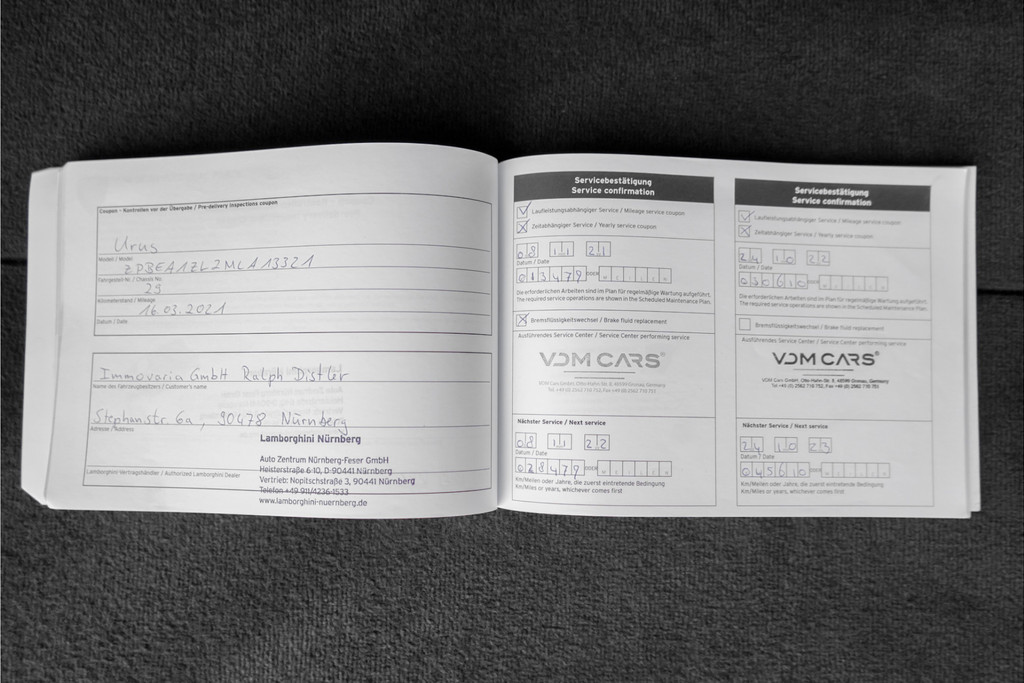 Coupon - Kontrollen vor der Übergabe / Pre-delivery inspections coupon
Urus
Modell / Model
ZPBEA1ZLZMLA13321
Fahrgestell Nr. / Chassis No.
29
Kilometerstand / Mileage
16.03.2021
Datum / Date
Immovaria GmbH Ralph Distler
Name des Fahrzeugbesitzers / Customer's name
Stephanstr. 6a, 90478 Nürnberg
Adresse / Address
Lamborghini Nürnberg
Auto Zentrum Nürnberg-Feser GmbH
Heisterstraße 6-10, D-90441 Nürnberg
Lamborghini Vertragshändler / Authorized Lamborghini Dealer
Vertrieb: Nopitschstraße 3, 90441 Nürnberg
Telefon +49 911/4236-1533
www.lamborghini-nuernberg.de
Servicebestätigung
Service confirmation
Laufleistungsabhängiger Service / Mileage service coupon
Zeitabhängiger Service / Yearly service coupon
08 11 21
Datum / Date
013479 ODER
Die erforderlichen Arbeiten sind im Plan für regelmäßige Wartung aufgeführt.
The required service operations are shown in the Scheduled Maintenance Plan.
Bremsflüssigkeitswechsel / Brake fluid replacement
Ausführendes Service Center / Service Center performing service
VDM CARS®
VDM Cars GmbH, Otto-Hahn-Str. 4, 48599 Gronau, Germany
Nächster Service / Next service
08 11 22
Datum / Date
028479 ODER
Km/Meilen oder Jahre, die zuerst eintretende Bedingung
Km/Miles or years, whichever comes first
Servicebestätigung
Service confirmation
Laufleistungsabhängiger Service / Mileage service coupon
Zeitabhängiger Service / Yearly service coupon
24 10 22
Datum / Date
030610 ODER
Die erforderlichen Arbeiten sind im Plan für regelmäßige Wartung aufgeführt.
The required service operations are shown in the Scheduled Maintenance Plan.
Bremsflüssigkeitswechsel / Brake fluid replacement
Ausführendes Service Center / Service Center performing service
VDM CARS®
VDM Cars GmbH, Otto-Hahn-Str. 4, 48599 Gronau, Germany
Nächster Service / Next service
24 10 23
Datum / Date
045610 ODER
Km/Meilen oder Jahre, die zuerst eintretende Bedingung
Km/Miles or years, whichever comes first